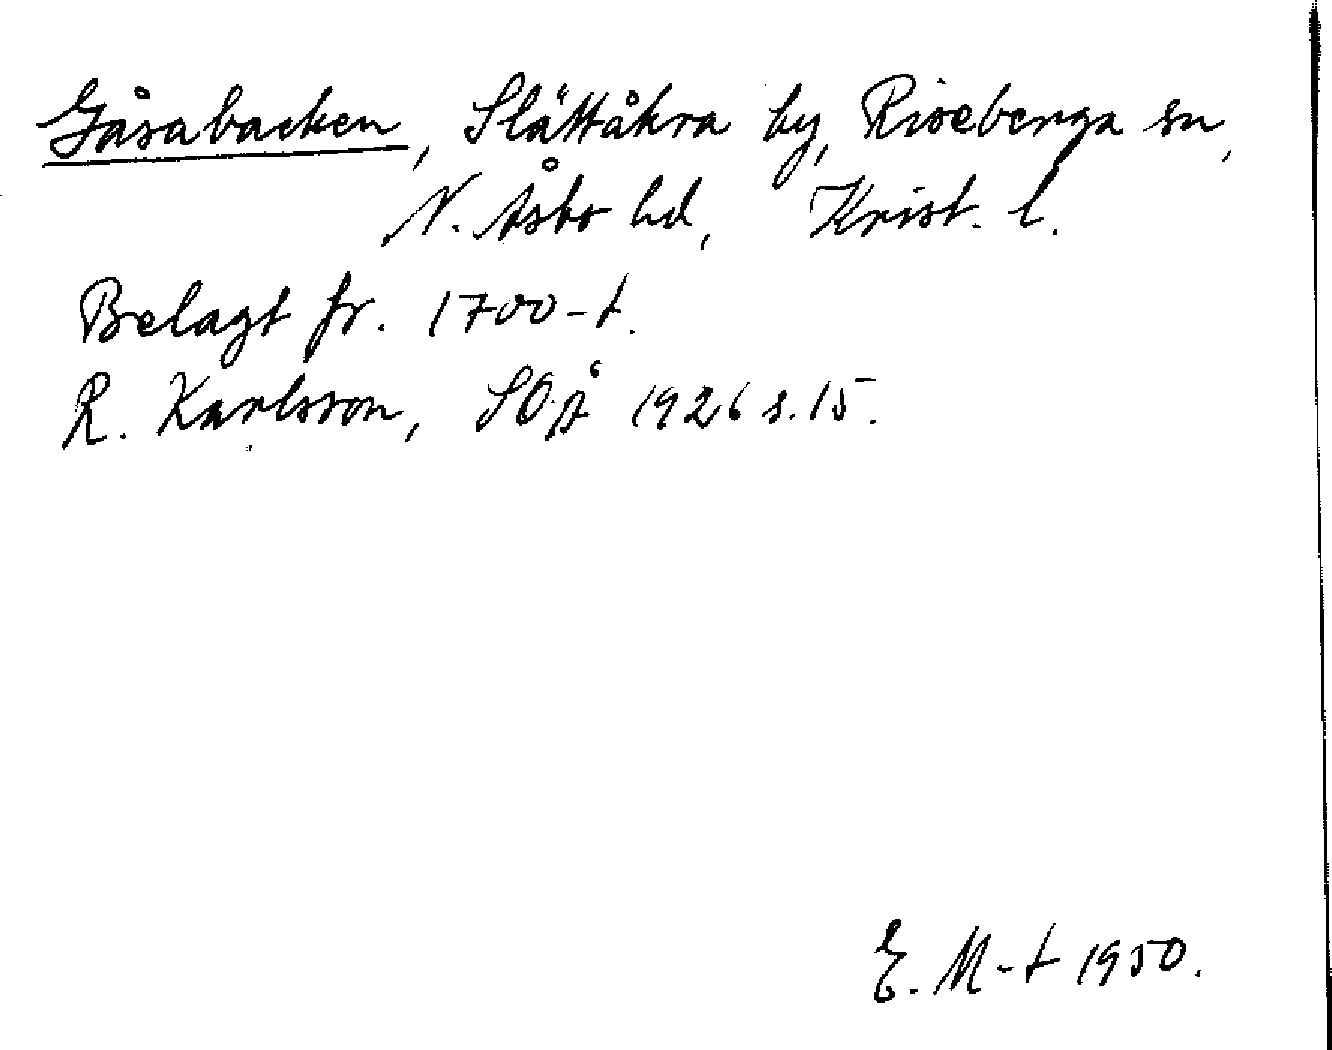 Gåsabacken, Slättåkra by, Riseberga sn,
N. Åsbo hd, Krist. l.
Belagt fr. 1700-t.
R. Karlsson, SOÅ 1926 s. 15.
E. M-t 1950.